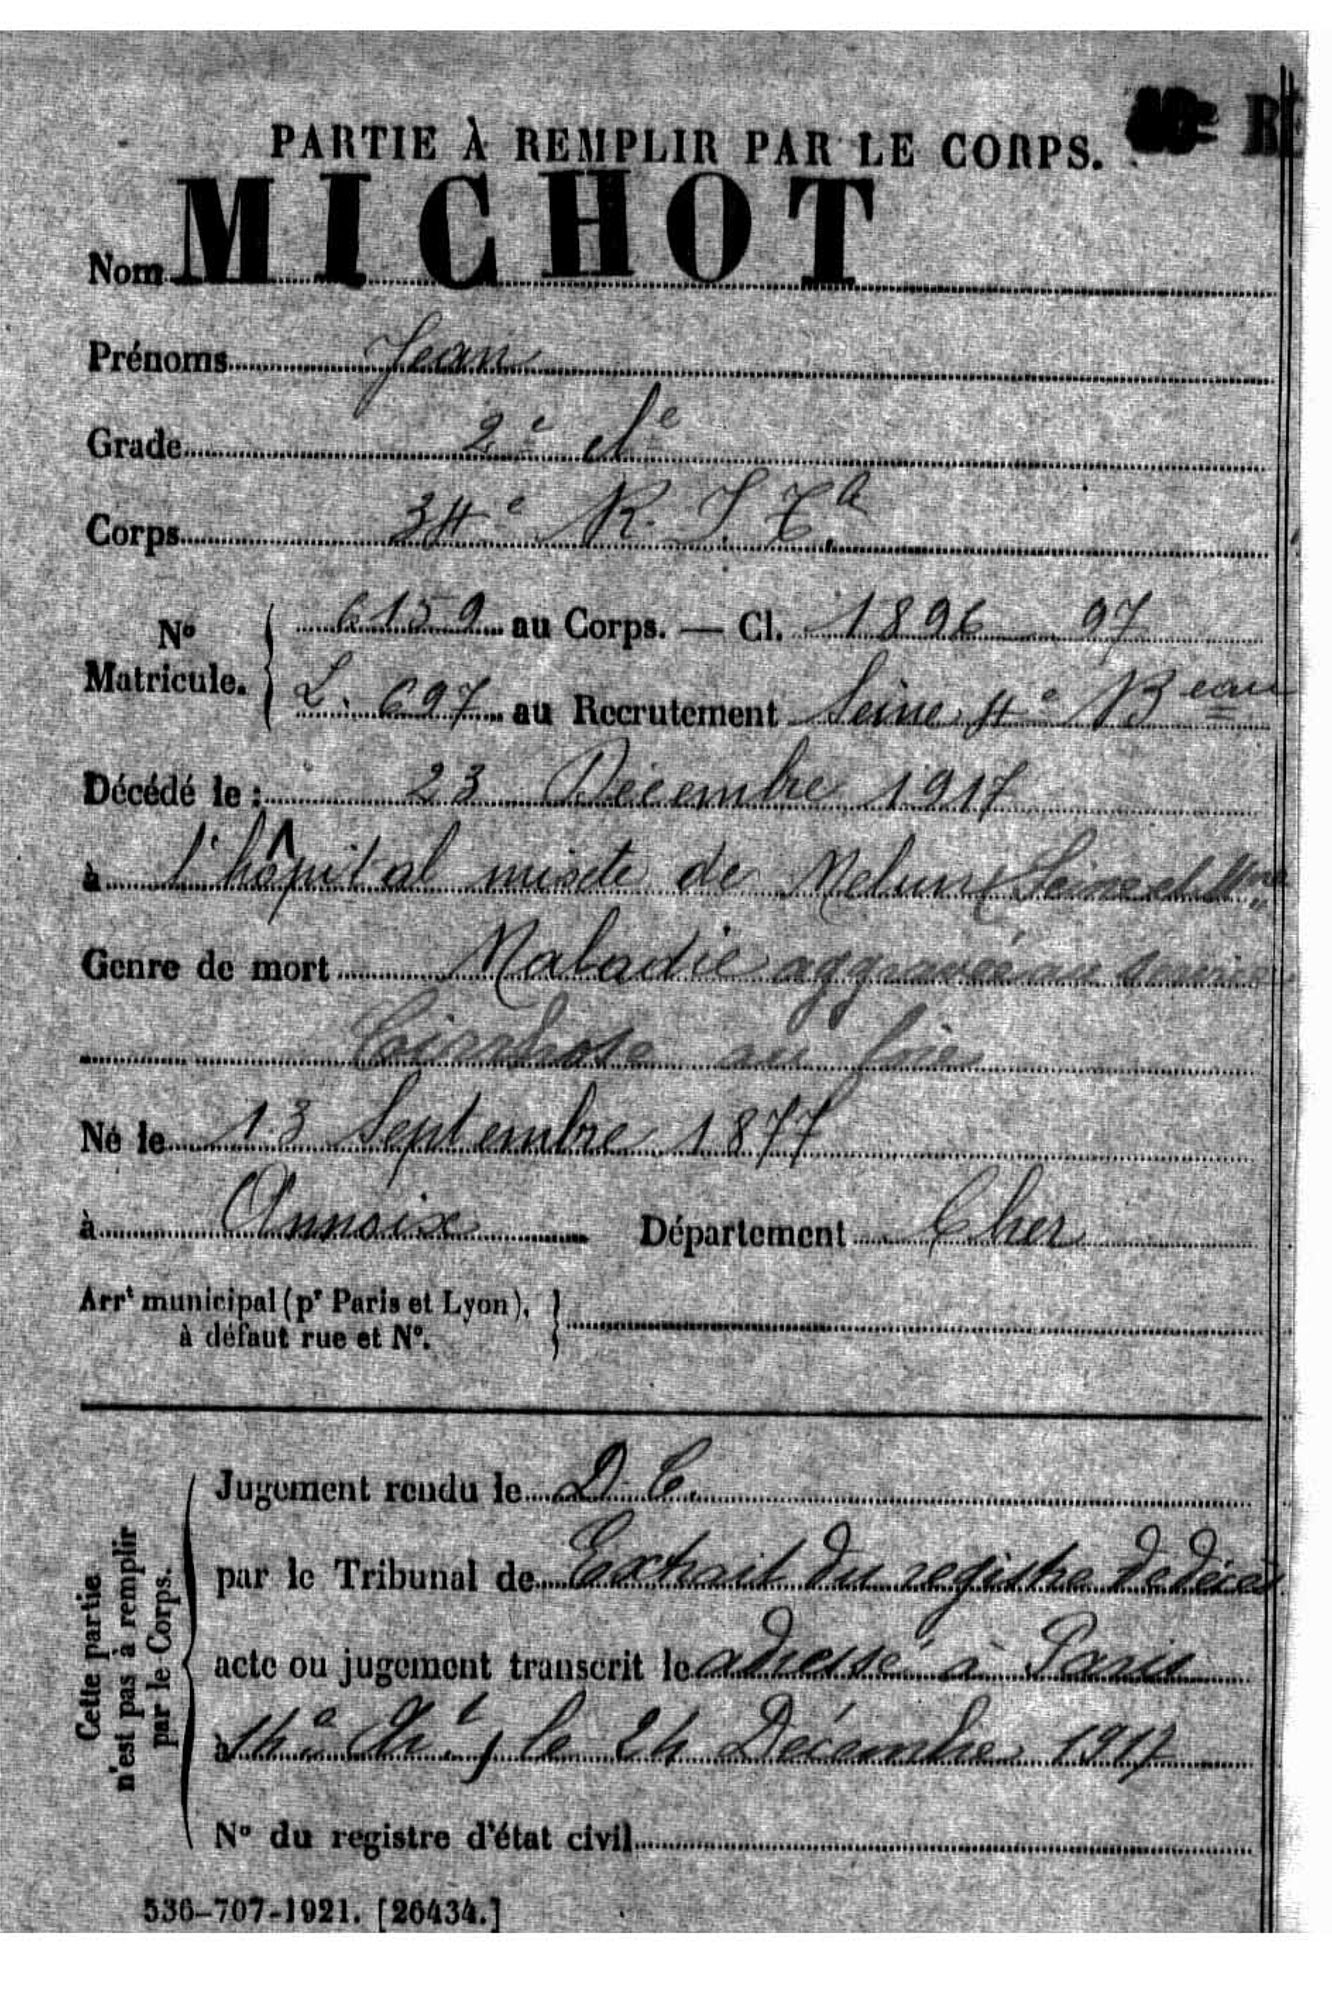 PARTIE À REMPLIR PAR LE CORPS.
Nom MICHOT
Prénoms Jean
Grade 2e Cle
Corps 34e R. I. Tle
No Matricule. 6159 au Corps. — Cl. 1896 97
L. 697 au Recrutement Seine 4e Beau
Décédé le : 23 Décembre 1917
à l'hôpital mixte de Melun (Seine et Mne
Genre de mort Maladie aggravée au service
Cirrhose au foie
Né le 13 Septembre 1877
à Annoix Département Cher
Arrt municipal (pr Paris et Lyon), à défaut rue et No.
Cette partie n'est pas à remplir par le Corps.
Jugement rendu le D. C.
par le Tribunal de Extrait du registre de décès
acte ou jugement transcrit le adressé à Paris
à 14e Art, le 24 Décembre 1917
No du registre d'état civil
536-707-1921. [26434.]